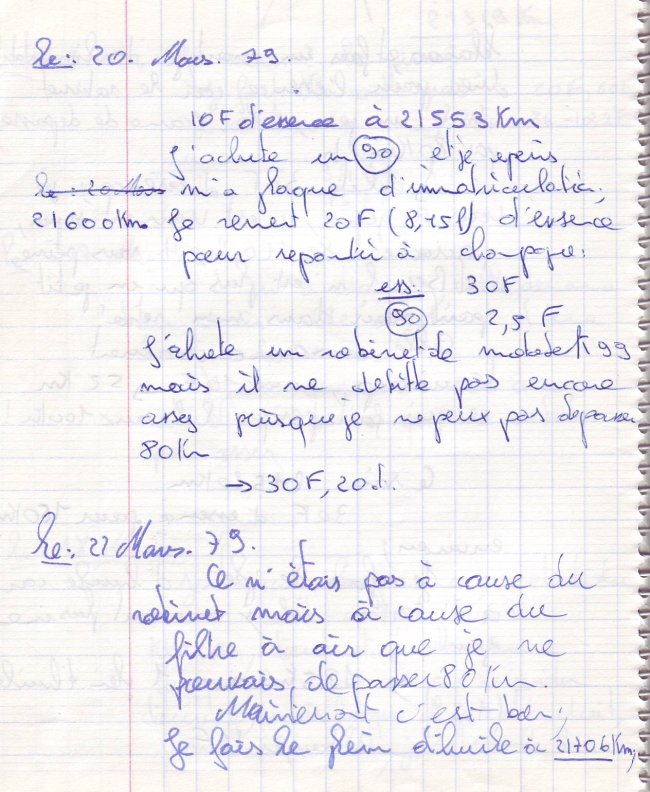 Le: 20. Mars. 79.
10F d'essence à 21553 Km
J'achete un 90 et je repeins
Le: 20 Mars ma plaque d'immatriculation.
21600Km. Je remet 20F (8,15l) d'essence
pour repartir à
ess: 30F
90 2,5 F
J'achete un robinet de mobylette 99
mais il ne debitte pas encore
assez puisque je ne peux pas depasser
80 Km
→ 30F, 20d.
Le: 21 Mars. 79.
Ce n'étais pas à cause du
robinet mais à cause du
filtre à air que je ne
pouvais depasser 80 Km.
Maintenant c'est bon;
Je fais le plein d'huile à 21706Km;